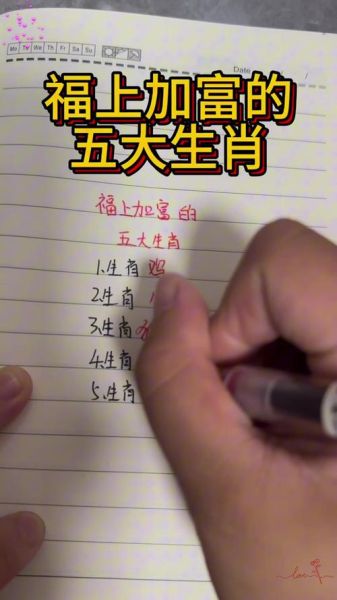 Mo Tu We Th Fr Sa Su
Date /
福上加富的
五大生肖
福上加富的
五大生肖
1.生肖鸡
2.生肖
3.生肖
4.生肖
5.生肖